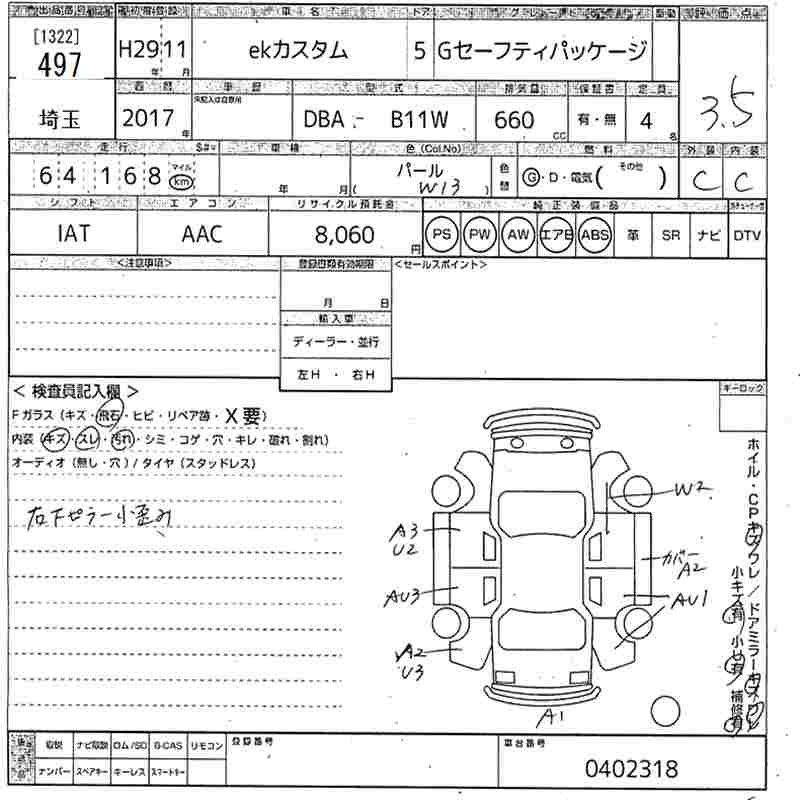 初度登録 車名 ドア グレード 評価点
[1322]
497
H29 11 ekカスタム 5 Gセーフティパッケージ
年 月
3.5
西暦 車歴 型式 排気量 保証書 定員
未記入は自家用
埼玉 2017 DBA - B11W 660 有・無 4
年 CC 名
走行 $#= 車検 色(Col.No) 燃料 外装 内装
64 168 マイル km 年 月 パール (W13) 色替 Ⓖ・D・電気( その他 ) C C
シフト エアコン リサイクル預託金 純正装備品
IAT AAC 8,060 円 PS PW AW エアB ABS 革 SR ナビ DTV
<注意事項> 登録書類有効期限 <セールスポイント>
月 日
輸入車
ディーラー・並行
左H ・ 右H
< 検査員記入欄 > キーロック
Fガラス (キズ・飛石・ヒビ・リペア跡・X要)
内装 (キズ・スレ・汚れ・シミ・コゲ・穴・キレ・破れ・割れ)
オーディオ (無し・穴) / タイヤ (スタッドレス)
右下ピラー小歪み
W2
A3
U2
カバー
A2
AU3
AU1
A2
U3
A1
ホイル・CPキズワレ/ドアミラーキズワレ
小キズ有 小U有 補修有
取説 ナビ取説 ロム/SD B-CAS リモコン 登録番号 車台番号
ナンバー スペアキー キーレス スマートキー
0402318